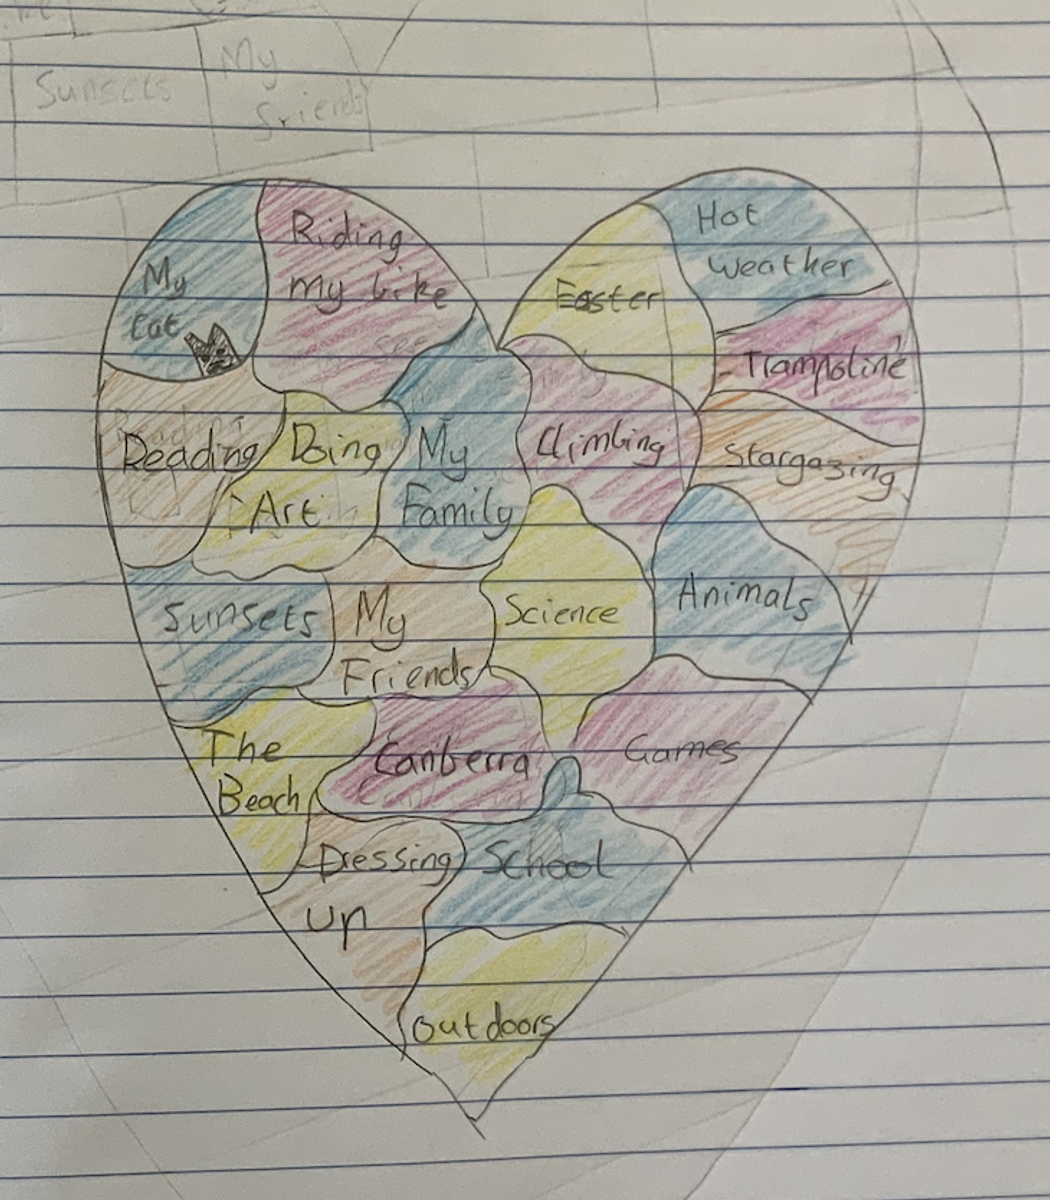 Sunsets
My
friends
My
Cat
Riding
my bike
Easter
Hot
Weather
Trampoline
Reading
Doing
Art
My
Family
Climbing
Stargazing
Sunsets
My
Friends
Science
Animals
The
Beach
Canberra
Games
Dressing
up
School
Outdoors